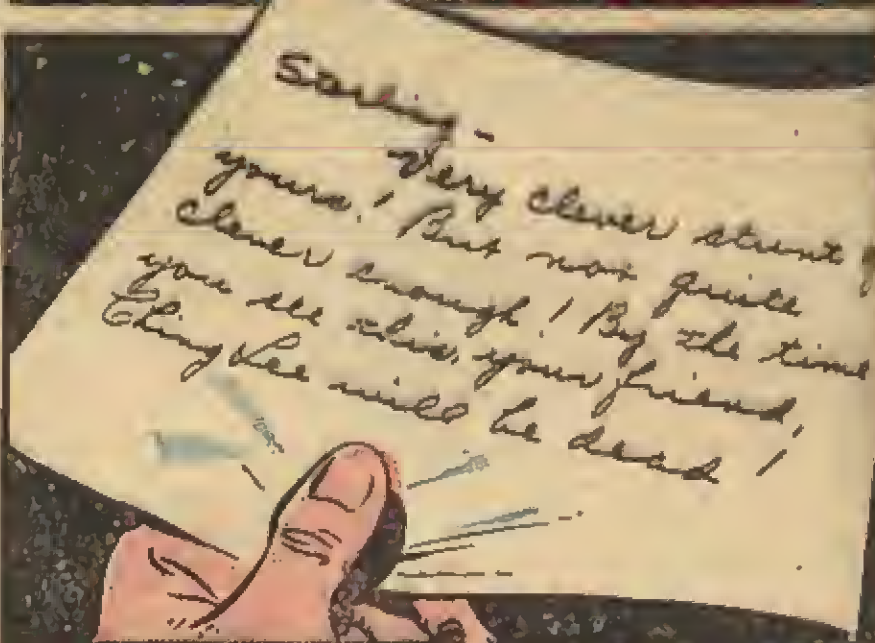 Very clever stunt
yours! But not quite
clever enough! By the time
you see this, your friend,
Ching Lee will be dead!